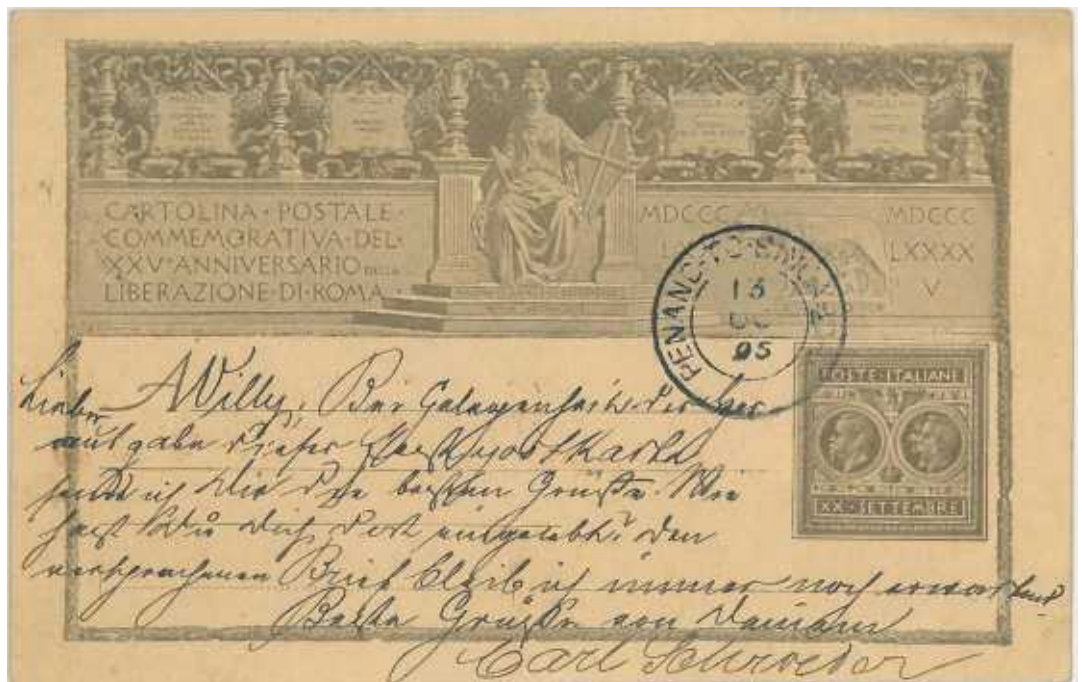 CARTOLINA · POSTALE ·
COMMEMORATIVA · DEL ·
XXV° ANNIVERSARIO DELLA
LIBERAZIONE · DI · ROMA ·
MDCCC
MDCCC
LXXXX
V
PENANG · TO · 
13
OC
95
POSTE · ITALIANE
XX · SETTEMBRE
Lieber Willy. Bei Gelegenheit der Her
ausgabe dieser Festpostkarte
sende ich Dir die besten Grüße. Wie
hast Du Dich dort eingelebt? Den
versprochenen Brief bleib ich immer noch erwartend
Beste Grüße von Deinem
Carl Schroeder